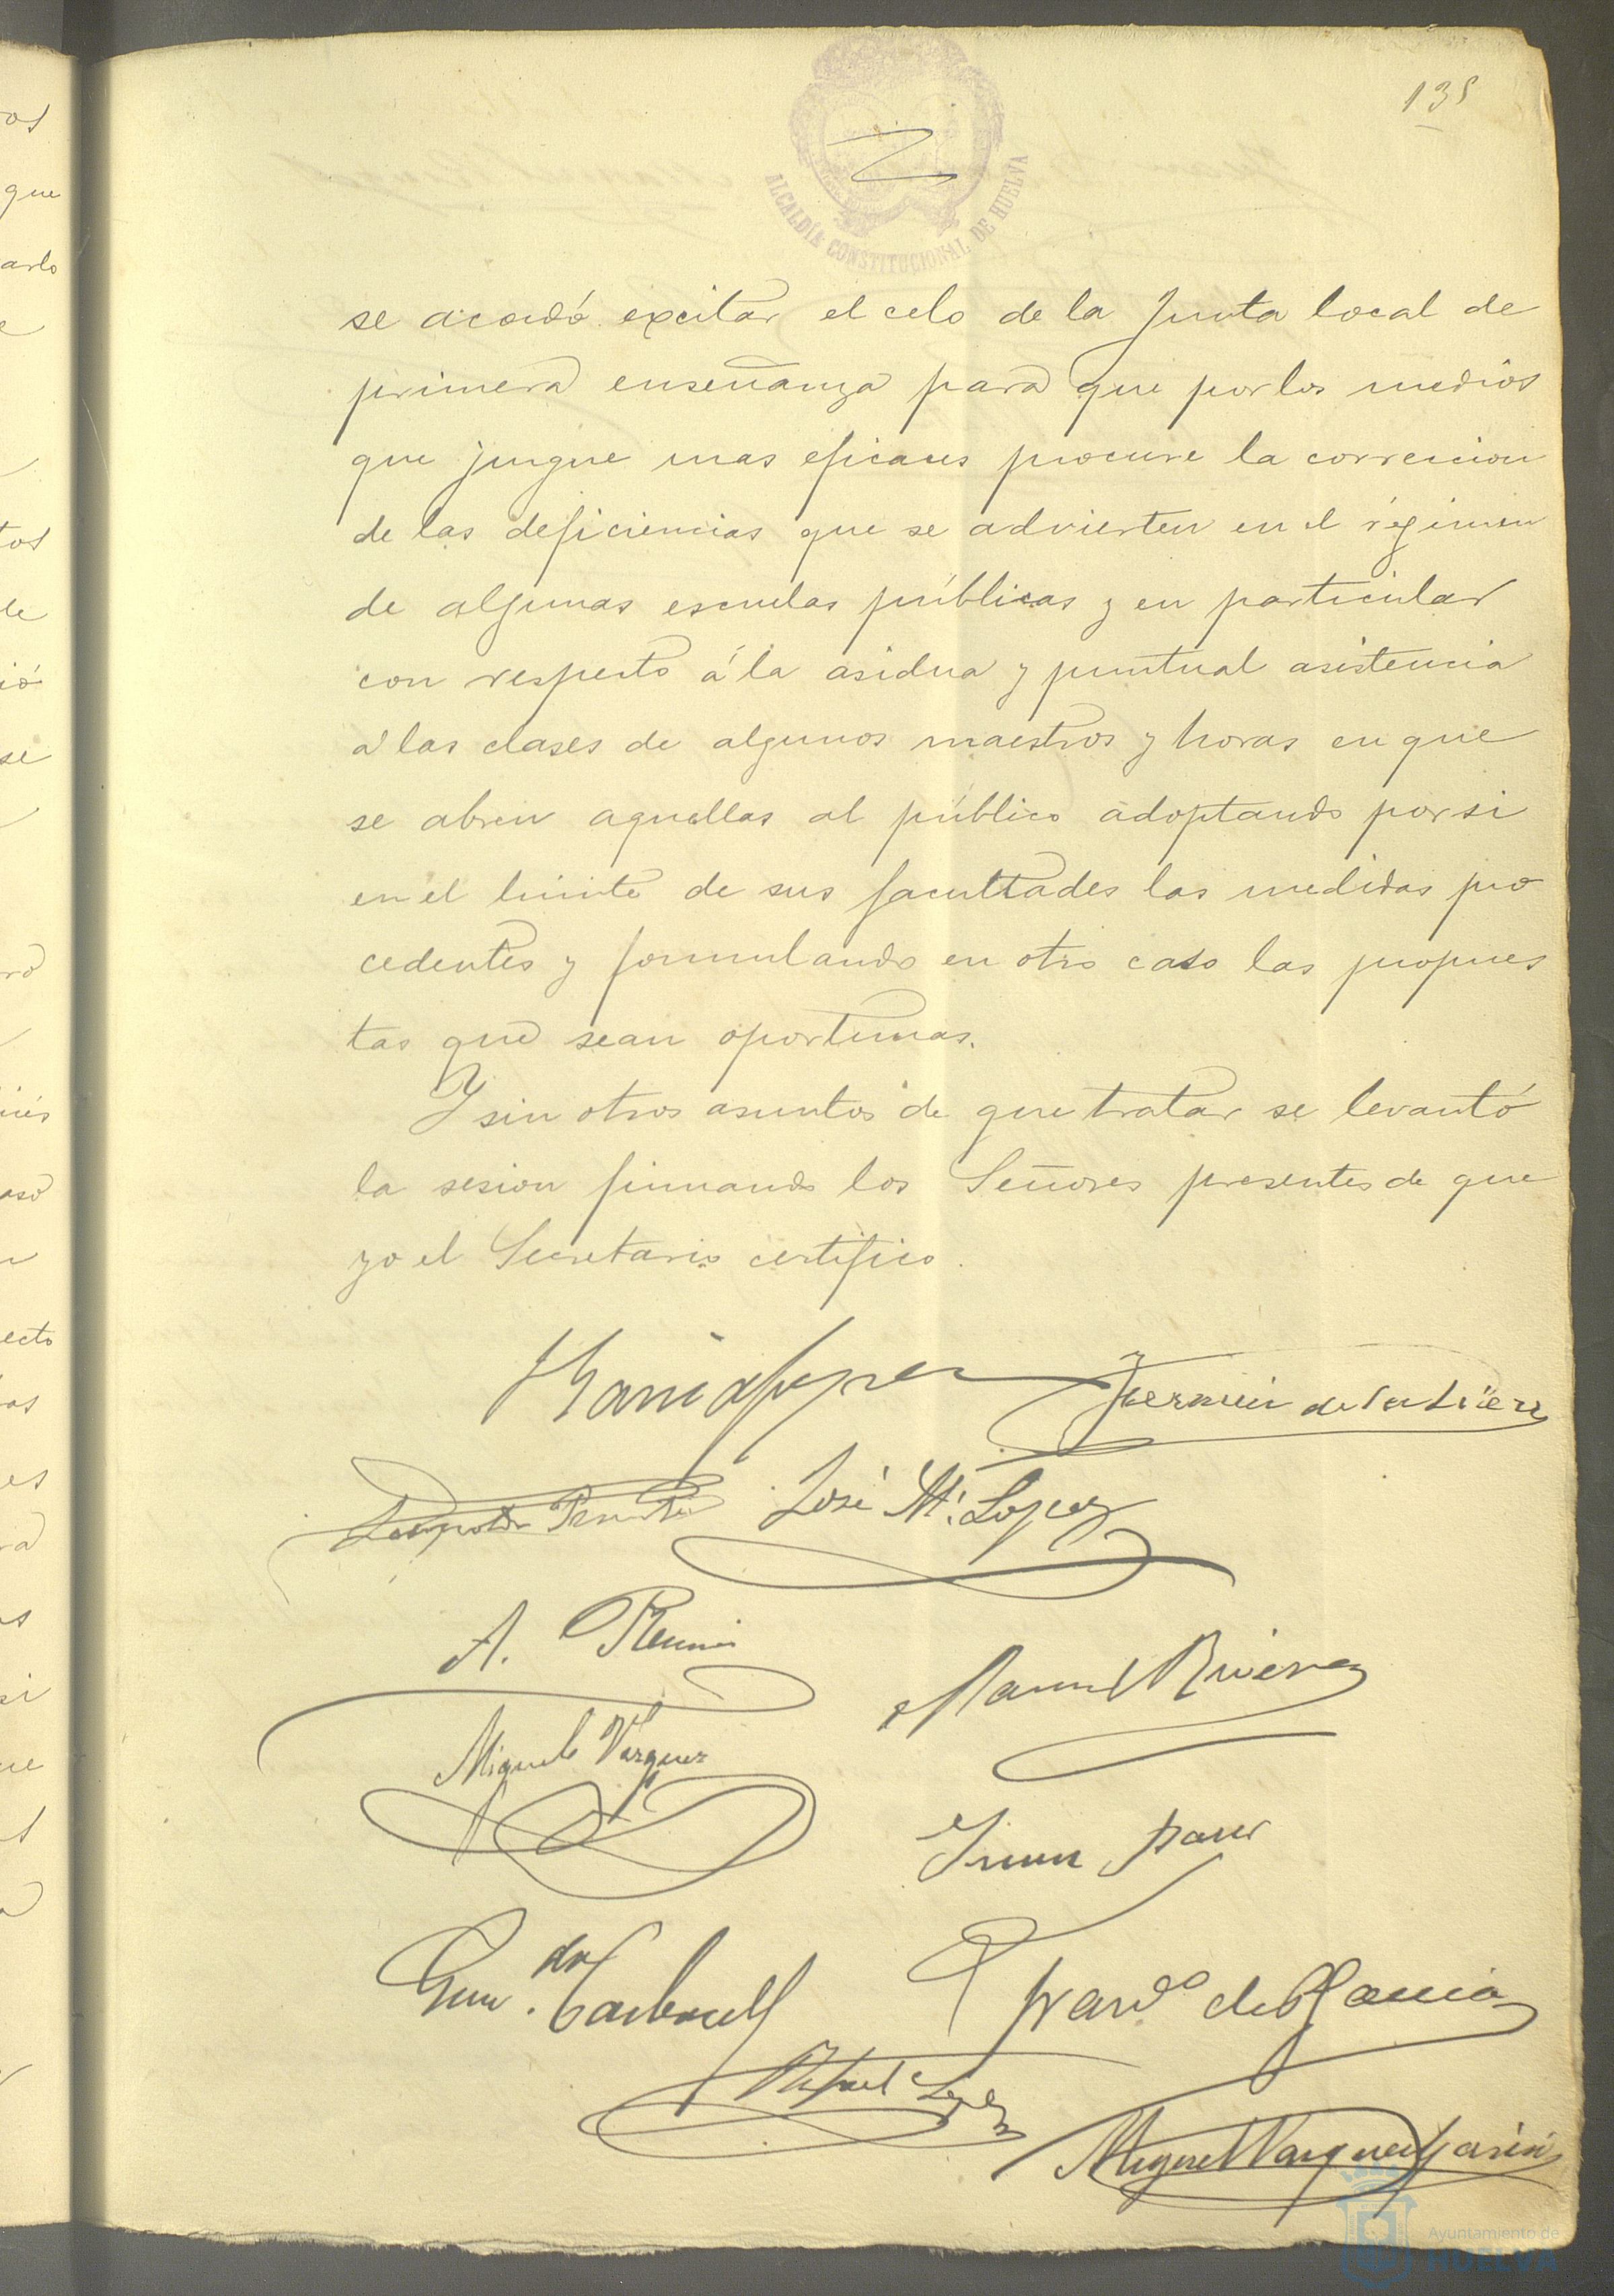 135
ALCALDÍA CONSTITUCIONAL DE HUELVA
se acordó excitar el celo de la Junta local de
primera enseñanza para que por los medios
que juzgue mas eficaces procure la correccion
de las deficiencias que se advierten en el régimen
de algunas escuelas públicas y en particular
con respecto á la asidua y puntual asistencia
á las clases de algunos maestros y horas en que
se abren aquellas al público adoptando por si
en el limite de sus facultades las medidas pro
cedentes y formulando en otro caso las propues
tas que sean oportunas.
Y sin otros asuntos de que tratar se levantó
la sesion firmando los Señores presentes de que
yo el Secretario certifico.
Garcia Lopez
Fermin de la
José Mª. Lopez
A.
Manuel Rivera
Miguel Vazquez
Juan
Gum.do Carbonell
Franco de P. Garcia
Rafael Lopez
Miguel Vazquez Garcia
Ayuntamiento de
HUELVA